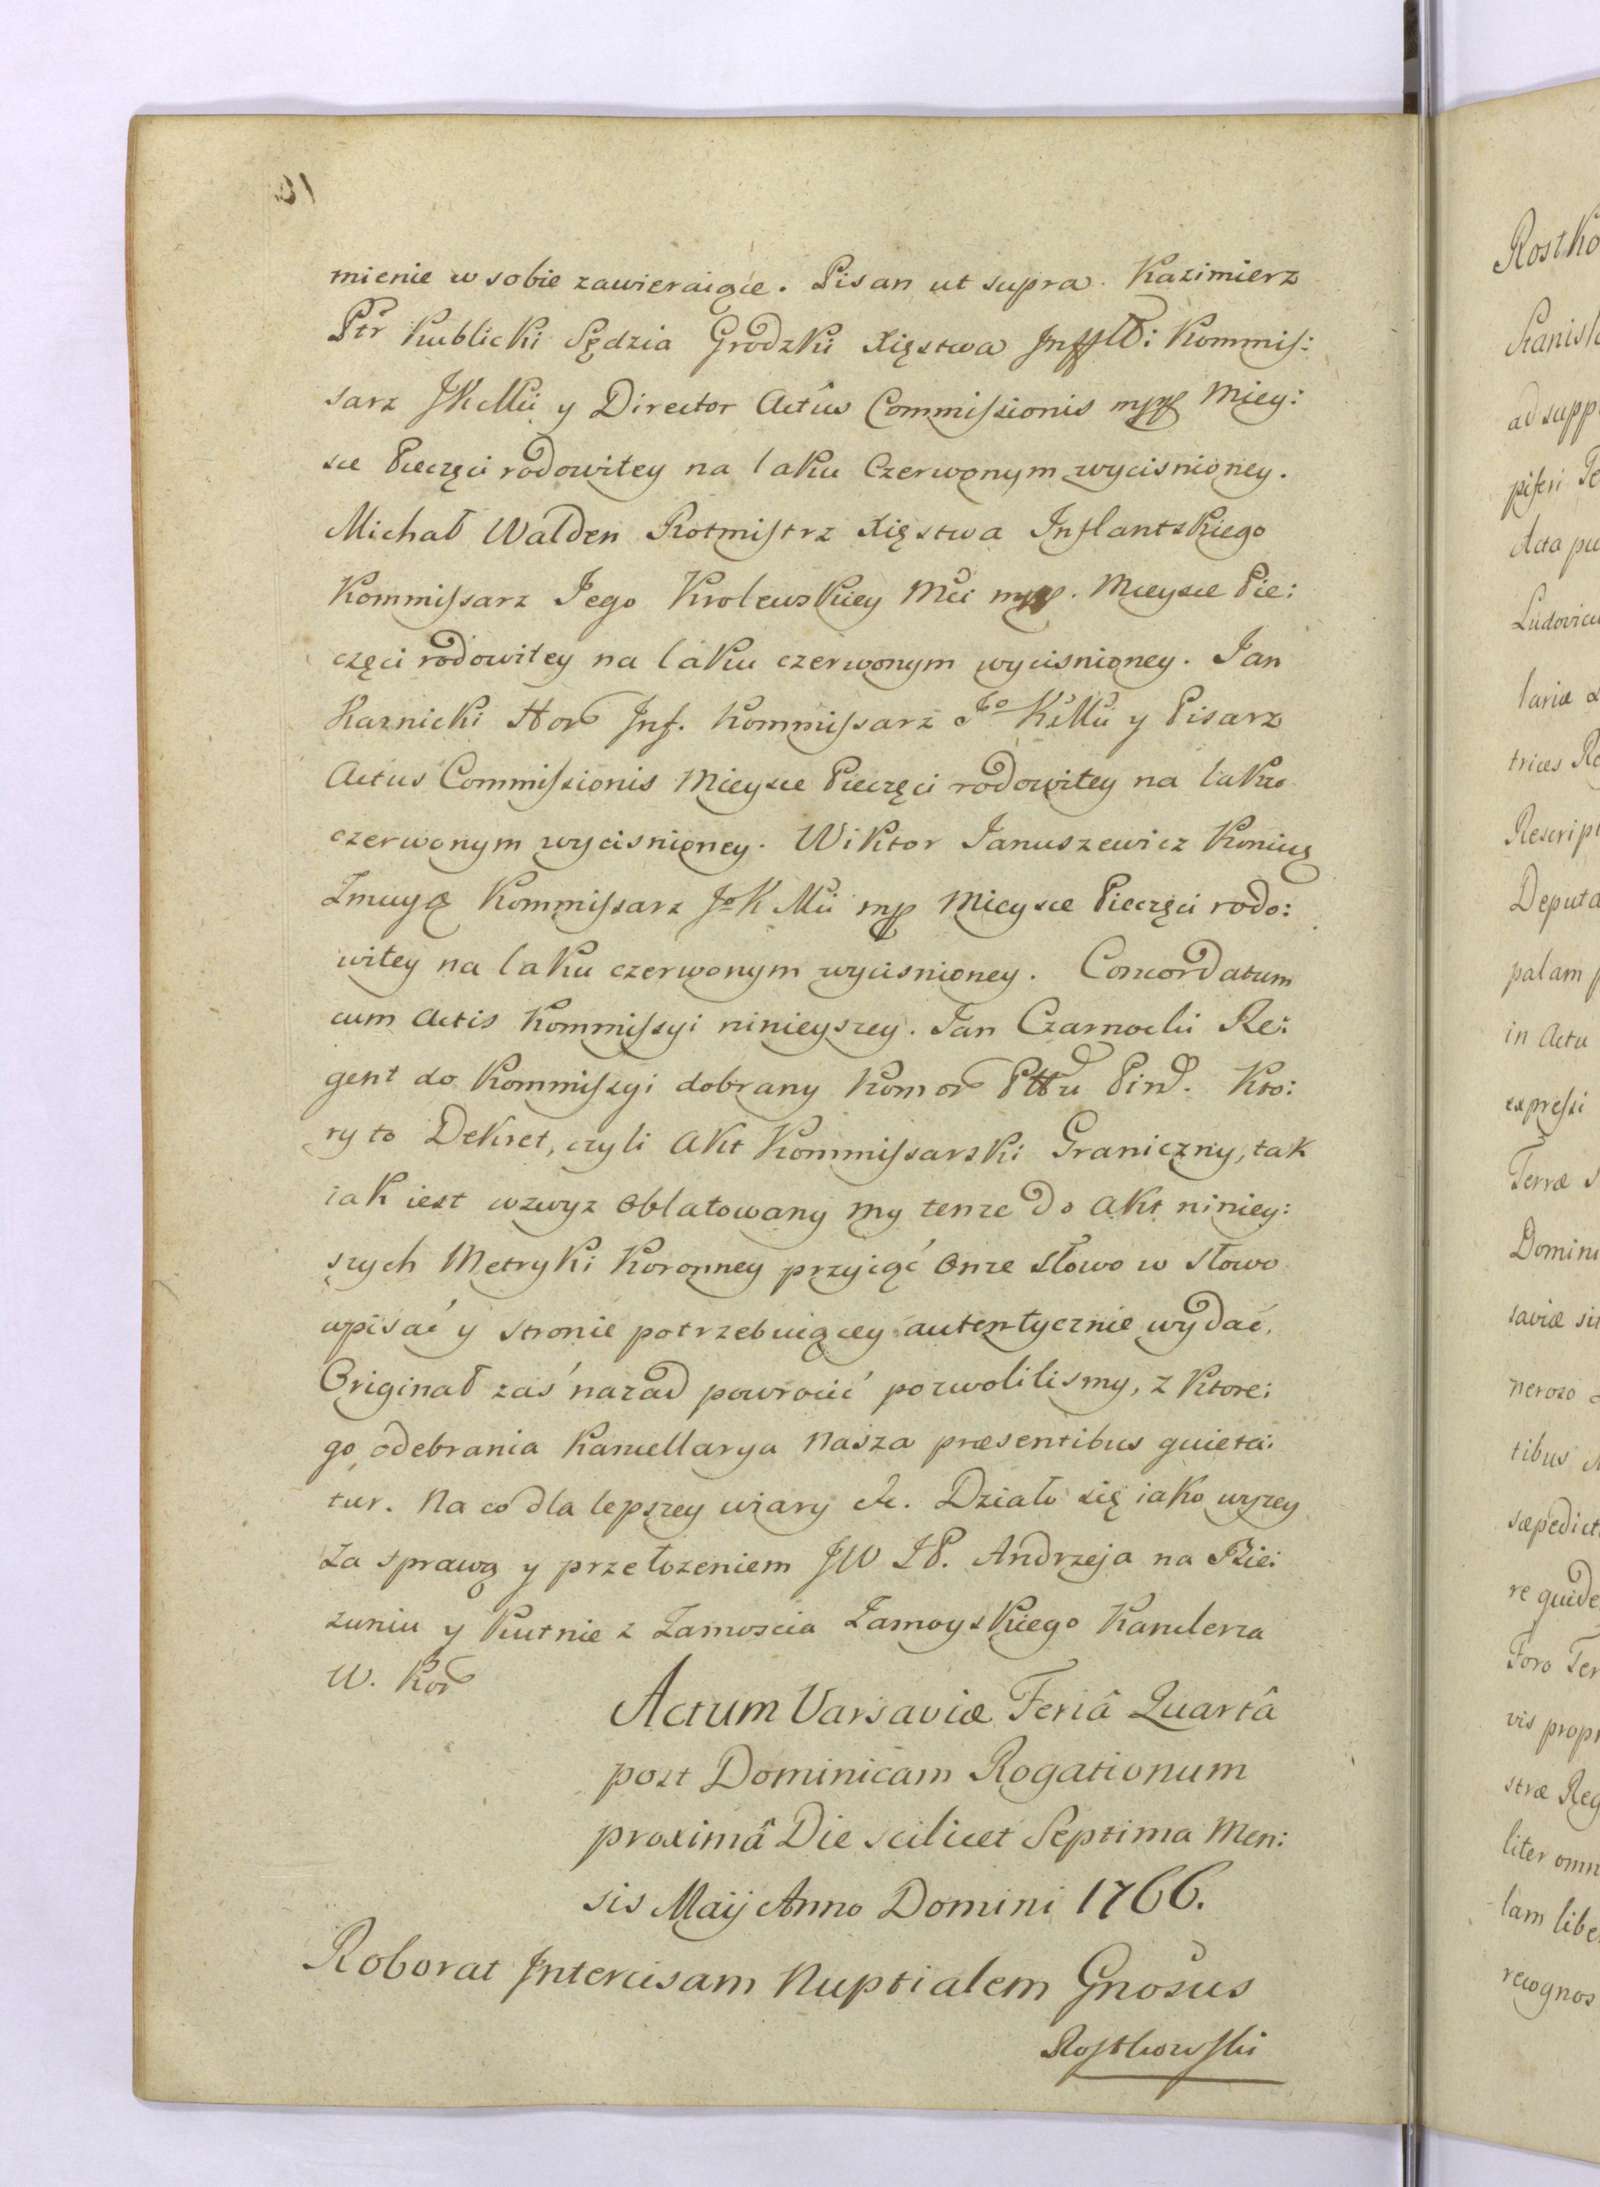 mienie w sobie zawieraiące. Pisan ut supra. Kazimierz
Ptr Kublicki Sędzia Grodzki Xięstwa Inffltt: Kommis:
sarz JKMci y Director Actûs Commissionis mpp Miey:
sce Pieczęci rodowitey na laku Czerwonym wycisnioney.
Michał Walden Rotmistrz Xięstwa Inflantskiego
Kommissarz Jego Krolewskiey Mci mpp. Mieysce Pie:
częci rodowitey na laku czerwonym wycisnioney. Jan
Karnicki Hor Inf. Kommissarz Jo KMci y Pisarz
Actus Commissionis Mieysce Pieczęci rodowitey na laku
czerwonym wycisnioney. Wiktor Januszewicz Koniuszy
Kommissarz Jo K Mci mp Mieysce Pieczęci rodo:
witey na laku czerwonym wycisnioney. Concordatum
cum Actis Kommissyi ninieyszey. Jan Czarnocki Re:
gent do Kommissyi dobrany Komor Pttu Pind. Kto:
ry to Dekret, czyli Akt Kommissarski Graniczny, tak
iak iest wzwyz Oblatowany my tenze do Akt niniey:
szych Metryki Koronney przyiąć Onze słowo w słowo
wpisać y stronie potrzebuiącey autentycznie wydać.
Originał zaś nazad powrocić pozwolilismy, z ktore:
go odebrania Kancellarya Nasza præsentibus quieta:
tur. Na co dla lepszey wiary &c. Działo się iako wyzey
Za sprawą y przełozeniem JW IP. Andrzeja na Bie:
zuniu y Kutnie z Zamoscia Zamoyskiego Kanclerza
W. Kor
Actum Varsaviæ Feriâ Quartâ
post Dominicam Rogationum
proximâ Die scilicet Septima Men:
sis Maij Anno Domini 1766.
Roborat Intercisam Nuptialem Gnosus
Rostkowski
Rostko
Stanisl
ad supp
piseri Te
Acta pu
Ludovicu
lariæ
trices Ro
Rescript
Deputa
palam p
in Actu
expressi
Terræ S
Domini
saviæ sit
neroso
tibus
sæpedict
re quide
Foro Ter
vis propr
stræ Reg
liter omn
lam libe
recognos